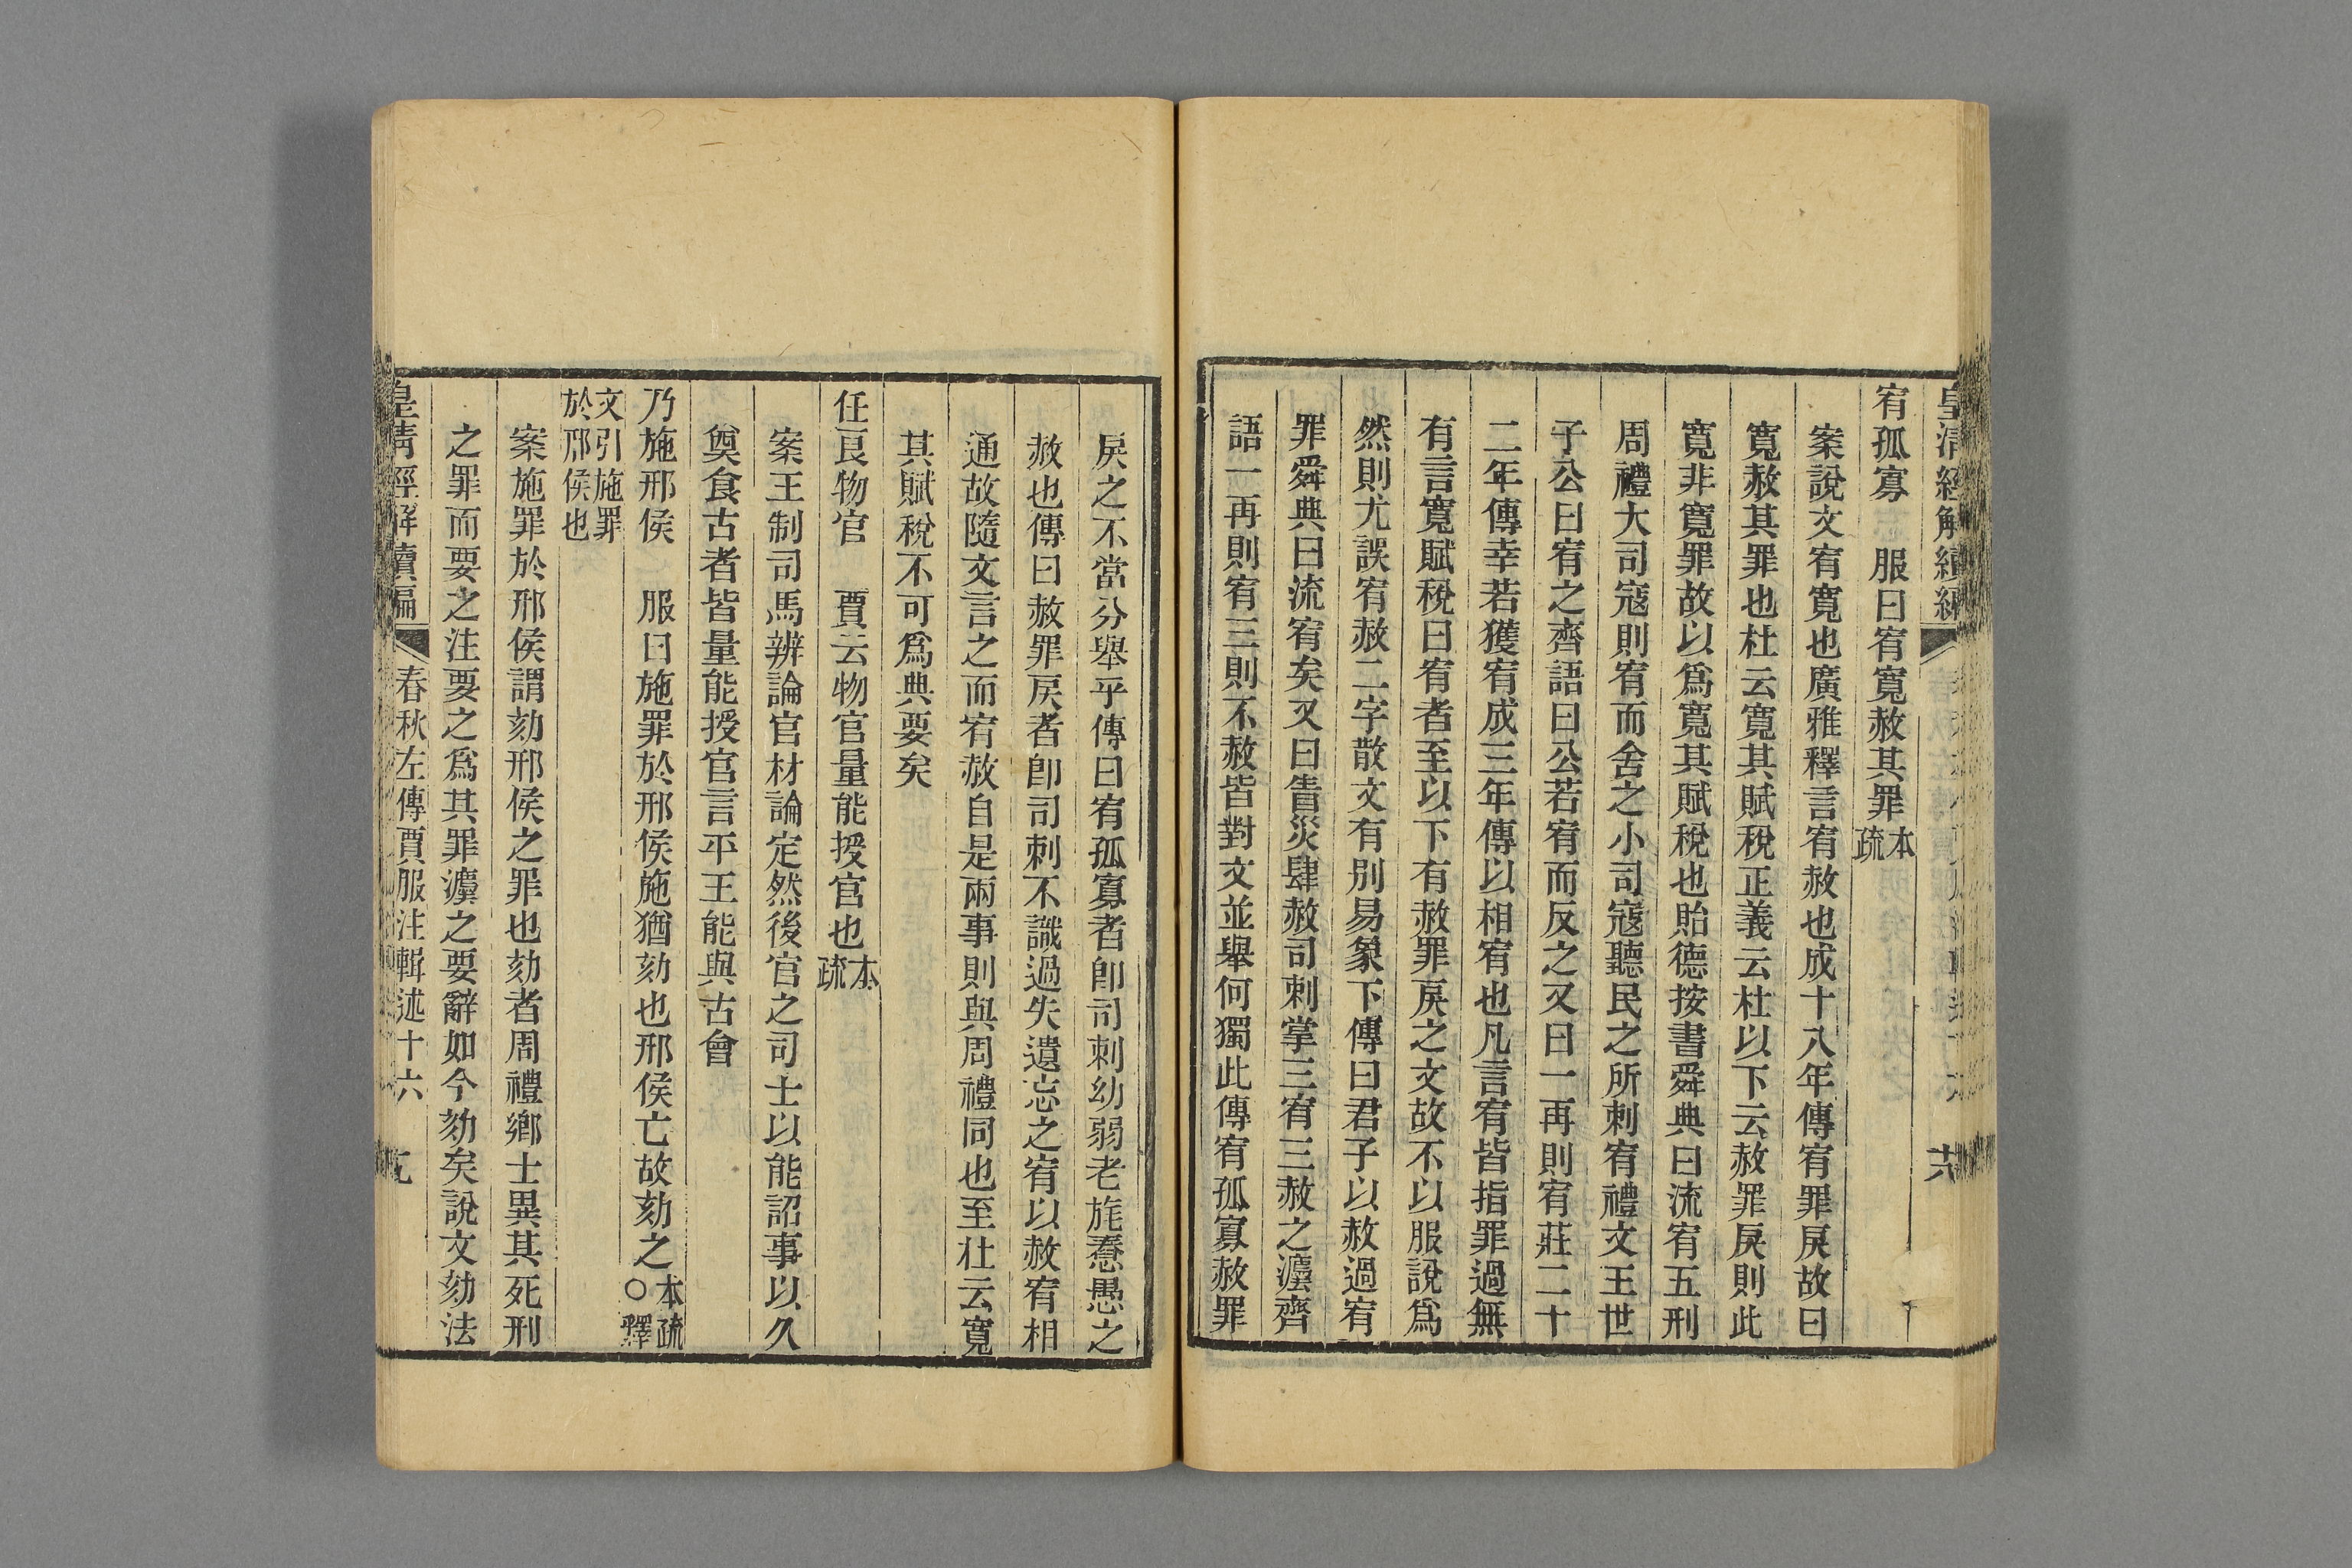 皇清經解續編
宥孤寡　服曰宥寬赦其罪本疏
案說文宥寬也廣雅釋言宥赦也成十八年傳宥罪戾故曰
寬赦其罪也杜云寬其賦稅正義云杜以下云赦罪戾則此
寬非寬罪故以爲寬其賦稅也貽德按書舜典曰流宥五刑
周禮大司寇則宥而舍之小司寇聽民之所刺宥禮文王世
子公曰宥之齊語曰公若宥而反之又曰一再則宥莊二十
二年傳幸若獲宥成三年傳以相宥也凡言宥皆指罪過無
有言寬賦稅曰宥者至以下有赦罪戾之文故不以服說爲
然則尤誤宥赦二字散文有別易象下傳曰君子以赦過宥
罪舜典曰流宥矣又曰眚災肆赦司刺掌三宥三赦之灋齊
語一再則宥三則不赦皆對文並舉何獨此傳宥孤寡赦罪
戾之不當分舉乎傳曰宥孤寡者卽司刺幼弱老旄惷愚之
赦也傳曰赦罪戾者卽司刺不識過失遺忘之宥以赦宥相
通故隨文言之而宥赦自是兩事則與周禮同也至杜云寬
其賦稅不可爲典要矣
任良物官　賈云物官量能授官也本疏
案王制司馬辨論官材論定然後官之司士以能詔事以久
奠食古者皆量能授官言平王能與古會
乃施邢侯　服曰施罪於邢侯施猶劾也邢侯亡故劾之本疏○釋
文引施罪於邢侯也
案施罪於邢侯謂劾邢侯之罪也劾者周禮鄉士異其死刑
之罪而要之注要之爲其罪灋之要辭如今劾矣說文劾法
皇清經解續編　春秋左傳賈服注輯述十六